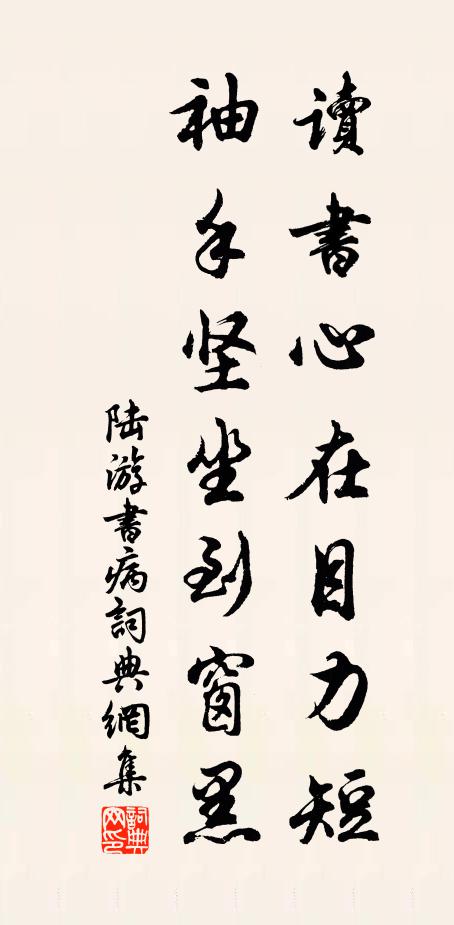 讀書心在目力短
袖手坚坐到窗黑
陆游書病詞典網集
詞典网印